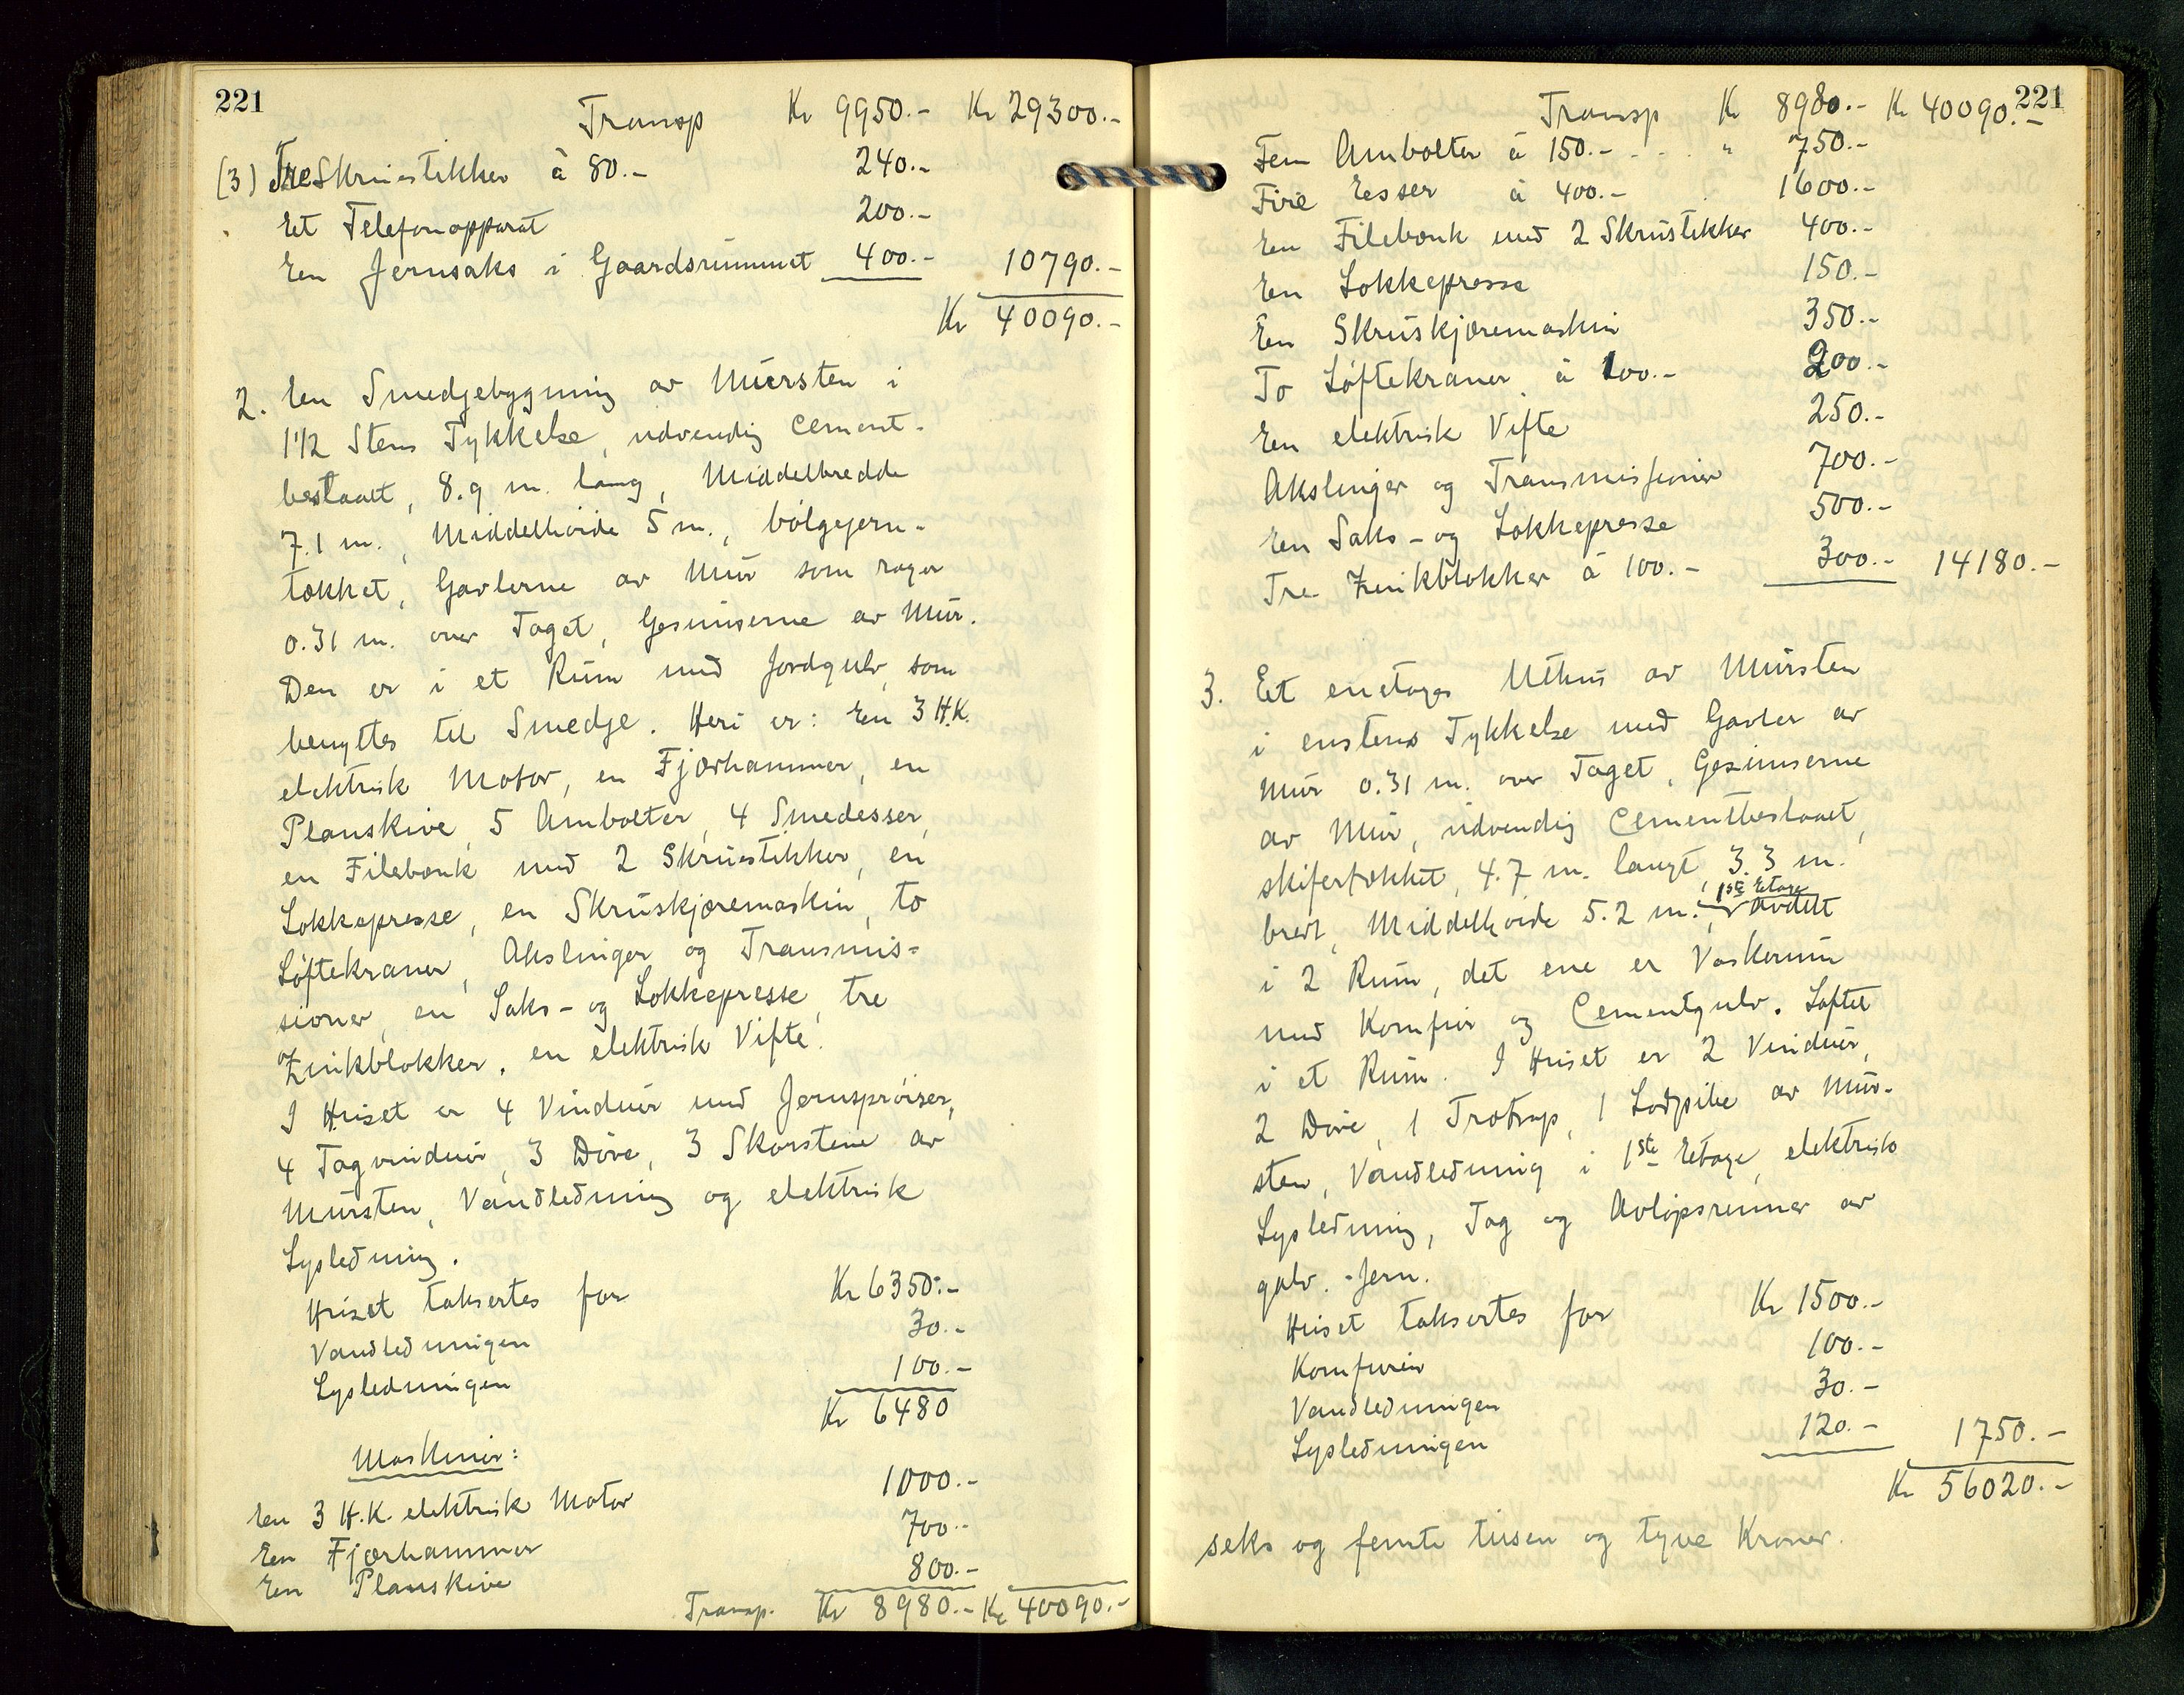 221
Transp Kr 9950.- Kr 29300.-
(3) Tre Skruestikker à 80.- 240.-
Et Telefonapparat 200.-
En Jernsaks i Gaardsrummet 400.- 10790.-
Kr 40090.-
2. En Smedjebygning av Mursten i
1 1/2 Stens Tykkelse, utvendig Cement-
beslaaet, 8.9 m. lang, Middelbredde
7.1 m., Middelhøide 5 m., bølgejern-
tækket, Gavlerne av Mur som rager
0.31 m. over Taget, Gesimserne av Mur.
Den er i et Rum med Jordgulv, som
benyttes til Smedje. Heri er: En 3 H.K.
elektrisk Motor, en Fjærhammer, en
Planskive, 5 Ambolter, 4 Smedesser,
en Filebænk med 2 Skruestikker, en
Lokkepresse, en Skruskjæremaskin, to
Løftekraner, Akslinger og Transmis=
sioner, en Saks- og Lokkepresse, tre
Zinkblokker, en elektrisk Vifte.
I Huset er 4 Vinduer med Jernsprøiser,
4 Tagvinduer, 3 Døre, 3 Skorstene av
Mursten, Vandledning og elektrisk
Lysledning.
Huset taksertes for Kr 6350.-
Vandledningen 30.-
Lysledningen 100.-
Kr 6480
Maskiner:
En 3 H.K. elektrisk Motor 1000.-
En Fjærhammer 700.-
En Planskive 800.-
Transp. Kr 8980.- Kr 40090.-
221
Transp Kr 8980.- Kr 40090.-
Fem Ambolter à 150.- . . . " 750.-
Fire Esser à 400.- 1600.-
En Filebænk med 2 Skrustikker 400.-
En Lokkepresse 150.-
En Skruskjæremaskin 350.-
To Løftekraner à 100.- 200.-
En elektrisk Vifte 250.-
Akslinger og Transmissioner 700.-
En Saks- og Lokkepresse 500.-
Tre Zinkblokker à 100.- 300.- 14180.-
3. Et enetages Uthus av Mursten
i enstens Tykkelse med Gavler av
Mur 0.31 m. over Taget, Gesimserne
av Mur, utvendig Cementbeslaaet,
skifertækket, 4.7 m. langt, 3.3 m.
1ste Etage
bredt, Middelhøide 5.2 m., avdelt
i 2 Rum, det ene er Vaskerum
med Komfur og Cementgulv. Loftet
i et Rum. I Huset er 2 Vinduer,
2 Døre, 1 Trætrap, 1 Lodpibe av Mur-
sten, Vandledning i 1ste Etage, elektrisk
Lysledning, Tag og Avløpsrenner av
galv. Jern.
Huset taksertes for Kr 1500.-
Komfuren 100.-
Vandledningen 30.-
Lysledningen 120.- 1750.-
Kr 56020.-
seks og femti tusen og tyve Kroner.